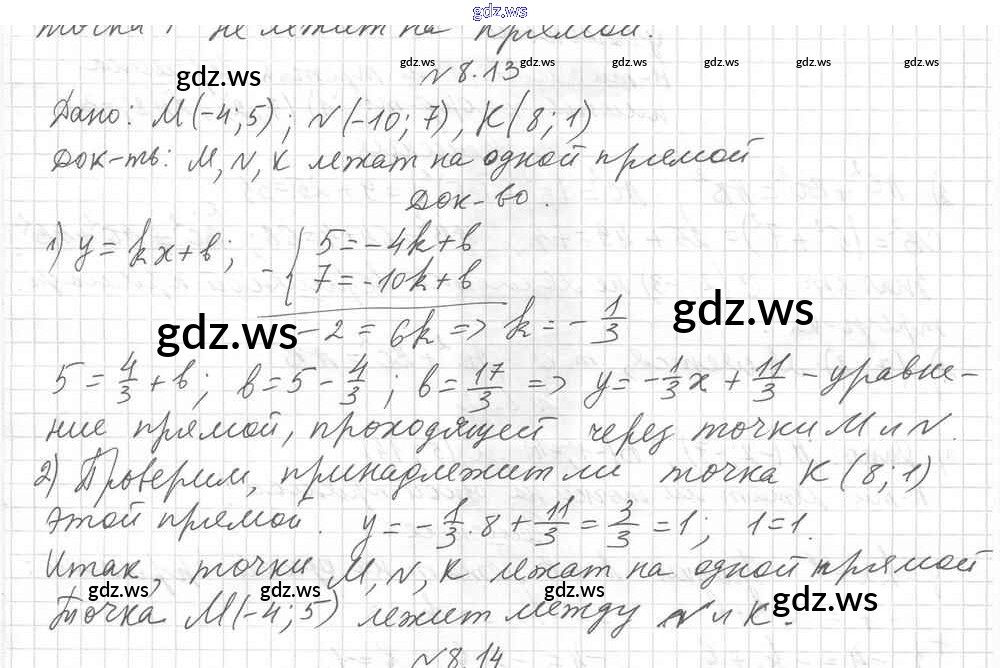 gdz.ws
точка не лежит на прямой.
gdz.ws gdz.ws gdz.ws gdz.ws gdz.ws gdz.ws gdz.ws
№ 8.13
Дано: M(-4; 5); N(-10; 7), K(8; 1)
Док-ть: M, N, K лежат на одной прямой
Док-во.
1) y = kx + b; - { 5 = -4k + b
7 = -10k + b
gdz.ws gdz.ws
-2 = 6k => k = -1/3
5 = 4/3 + b; b = 5 - 4/3; b = 17/3 => y = -1/3 x + 11/3 - уравне-
ние прямой, проходящей через точки M и N.
2) Проверим, принадлежит ли точка K (8; 1)
этой прямой. y = -1/3 · 8 + 11/3 = 3/3 = 1; 1 = 1.
Итак, точки M, N, K лежат на одной прямой
gdz.ws gdz.ws
Точка M(-4; 5) лежит между N и K.
№ 8.14